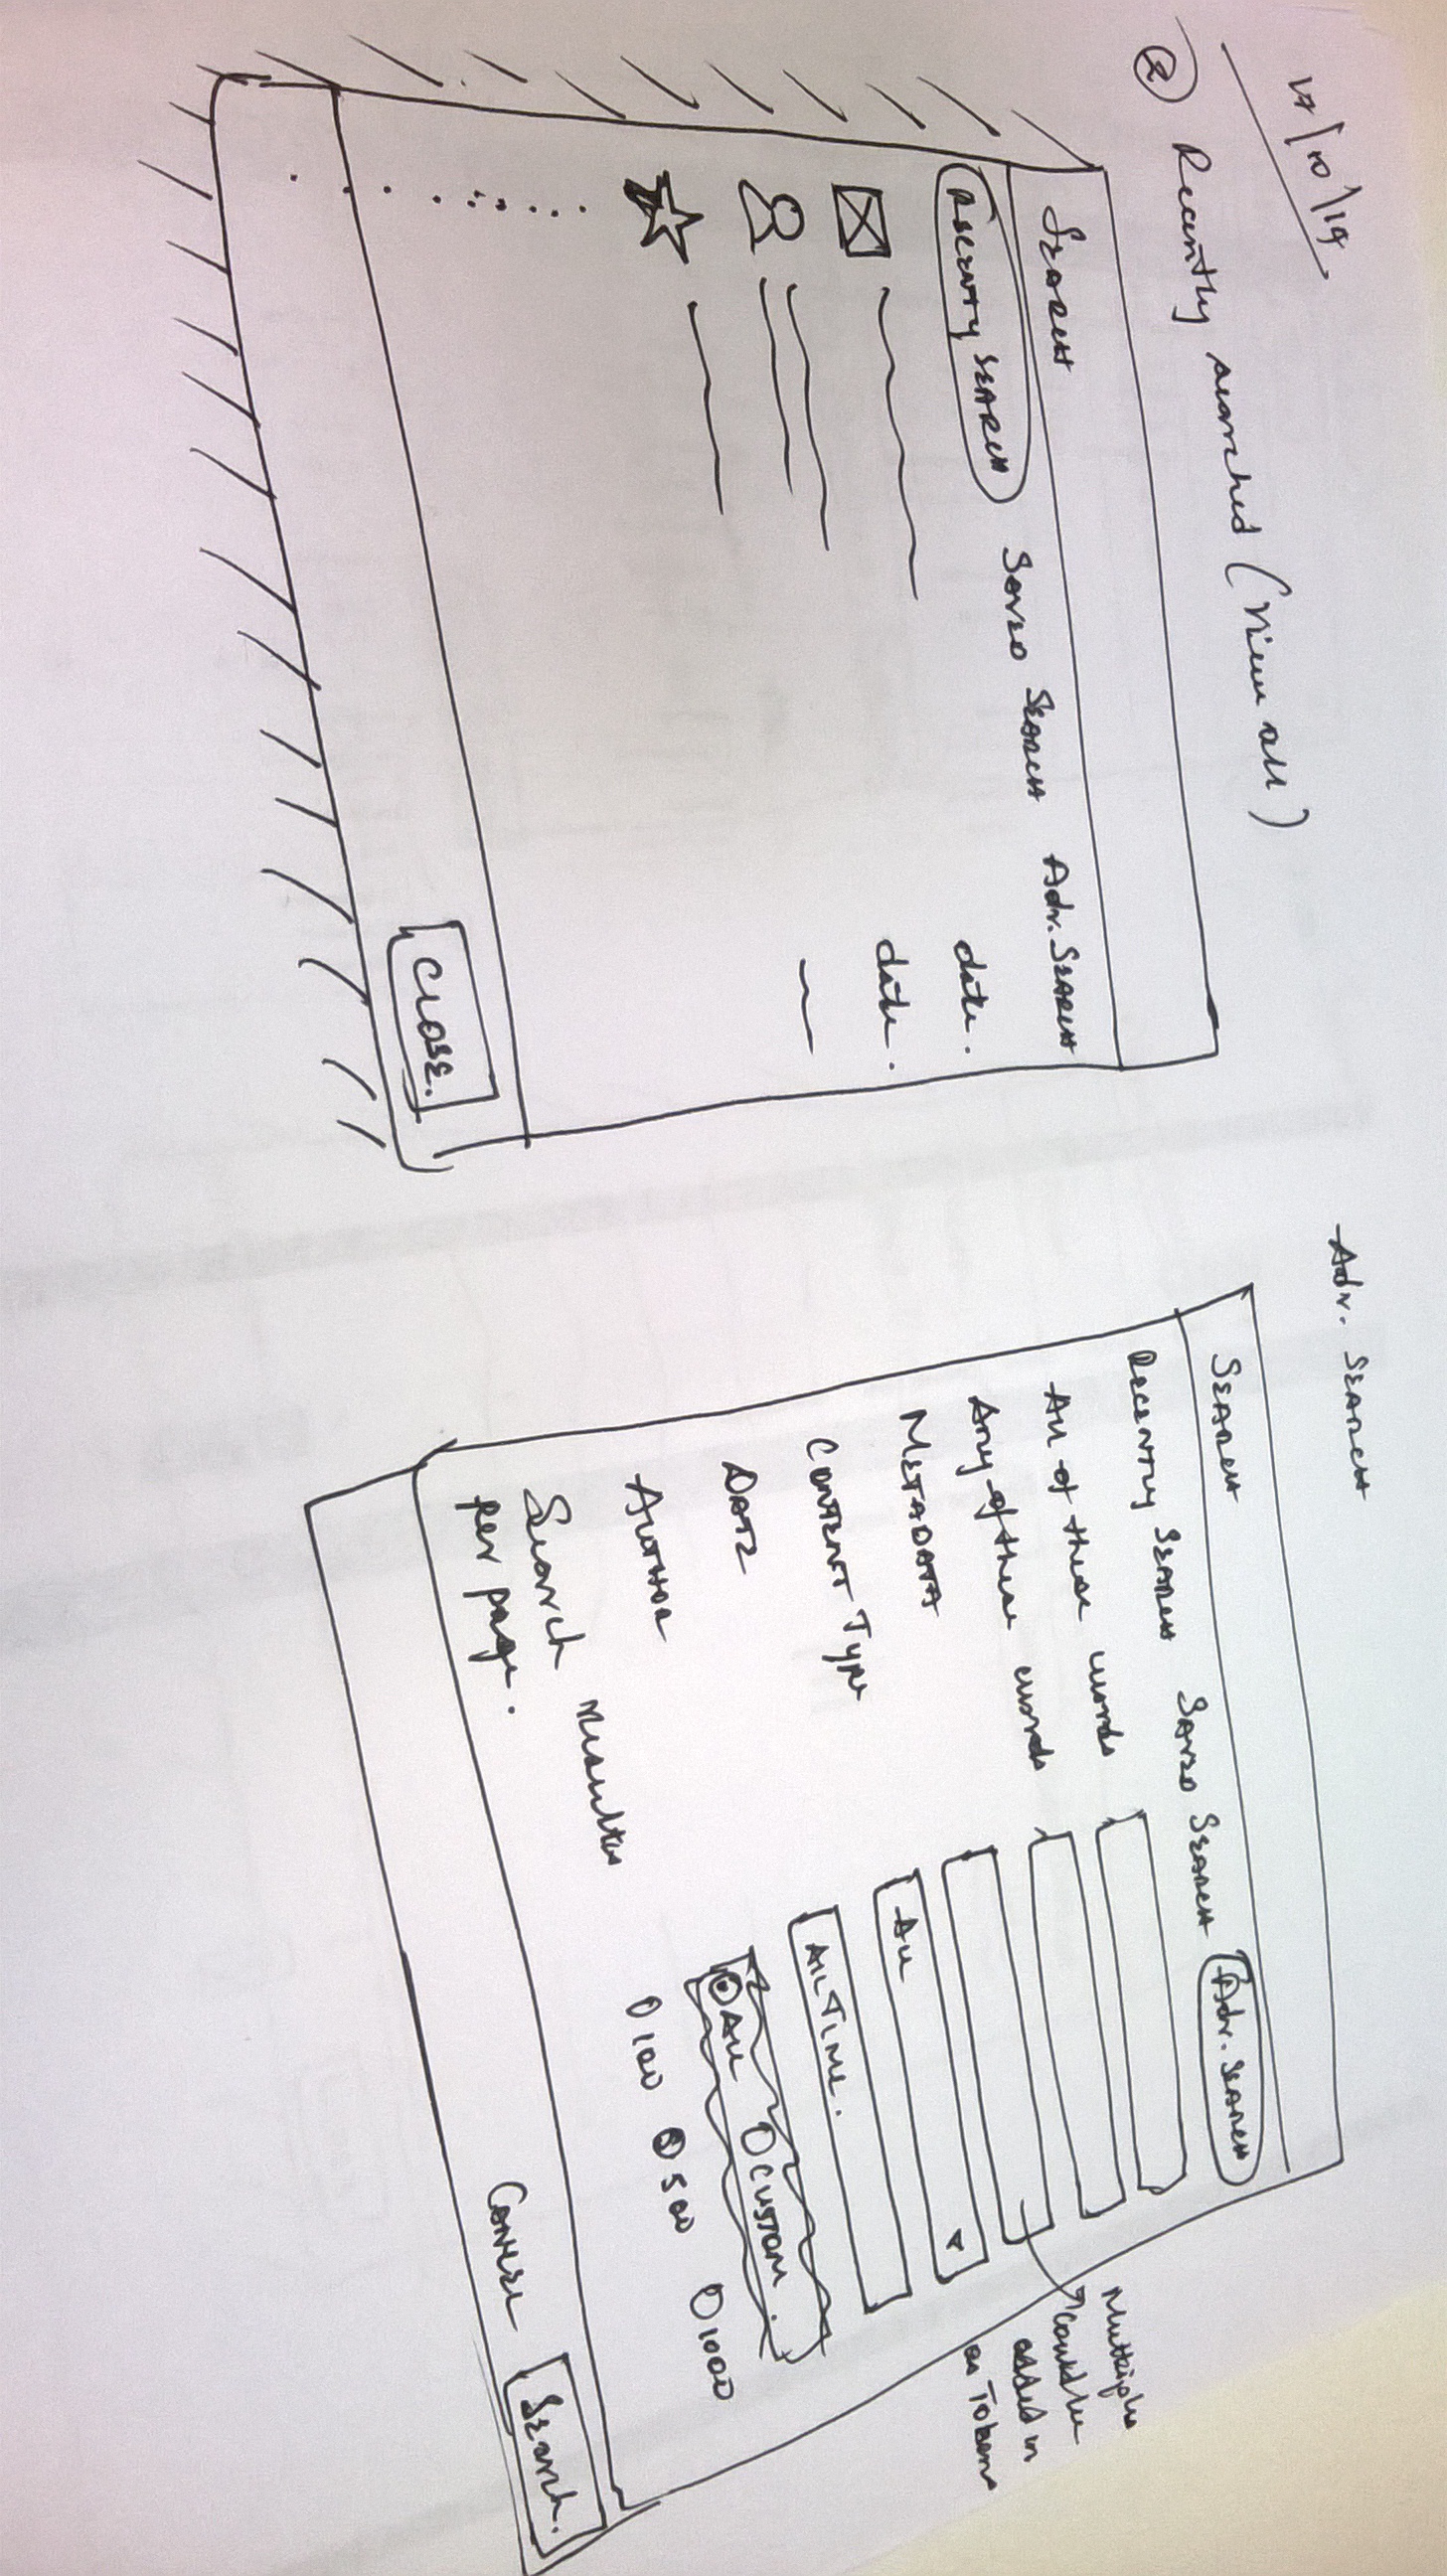 17/10/19
② Recently searched (View all)
SEARCH
RECENTLY SEARCH SAVED SEARCH Adv. SEARCH
date.
date.
CLOSE.
Adv. SEARCH
SEARCH
RECENTLY SEARCH SAVED SEARCH Adv. SEARCH
All of these words
Any of these words
METADATA
Multiple
could be
added in
as Tokens
CONTENT Type
All
DATE
All TIME.
AUTHOR
All CUSTOM.
Search results
per page.
100 500 1000
Cancel Search.